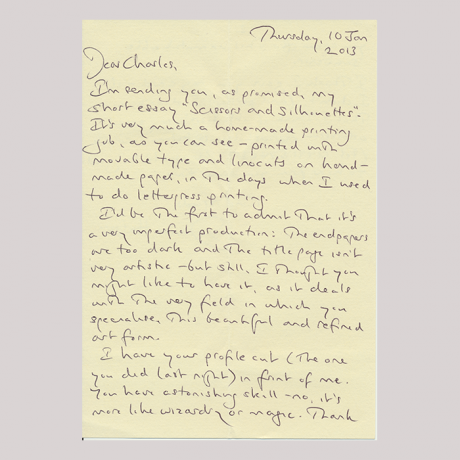 Thursday, 10 Jan
2013
Dear Charles,
I'm sending you, as promised, my
short essay "Scissors and Silhouettes".
It's very much a home-made printing
job, as you can see – printed with
movable type and linocuts on hand-
made paper, in the days when I used
to do letterpress printing.
I'd be the first to admit that it's
a very imperfect production: the endpapers
are too dark and the title page isn't
very artistic – but still, I thought you
might like to have it, as it deals
with the very field in which you
specialise, this beautiful and refined
art form.
I have your profile cut (the one
you did last night) in front of me.
You have astonishing skill – no, it's
more like wizardry or magic. Thank